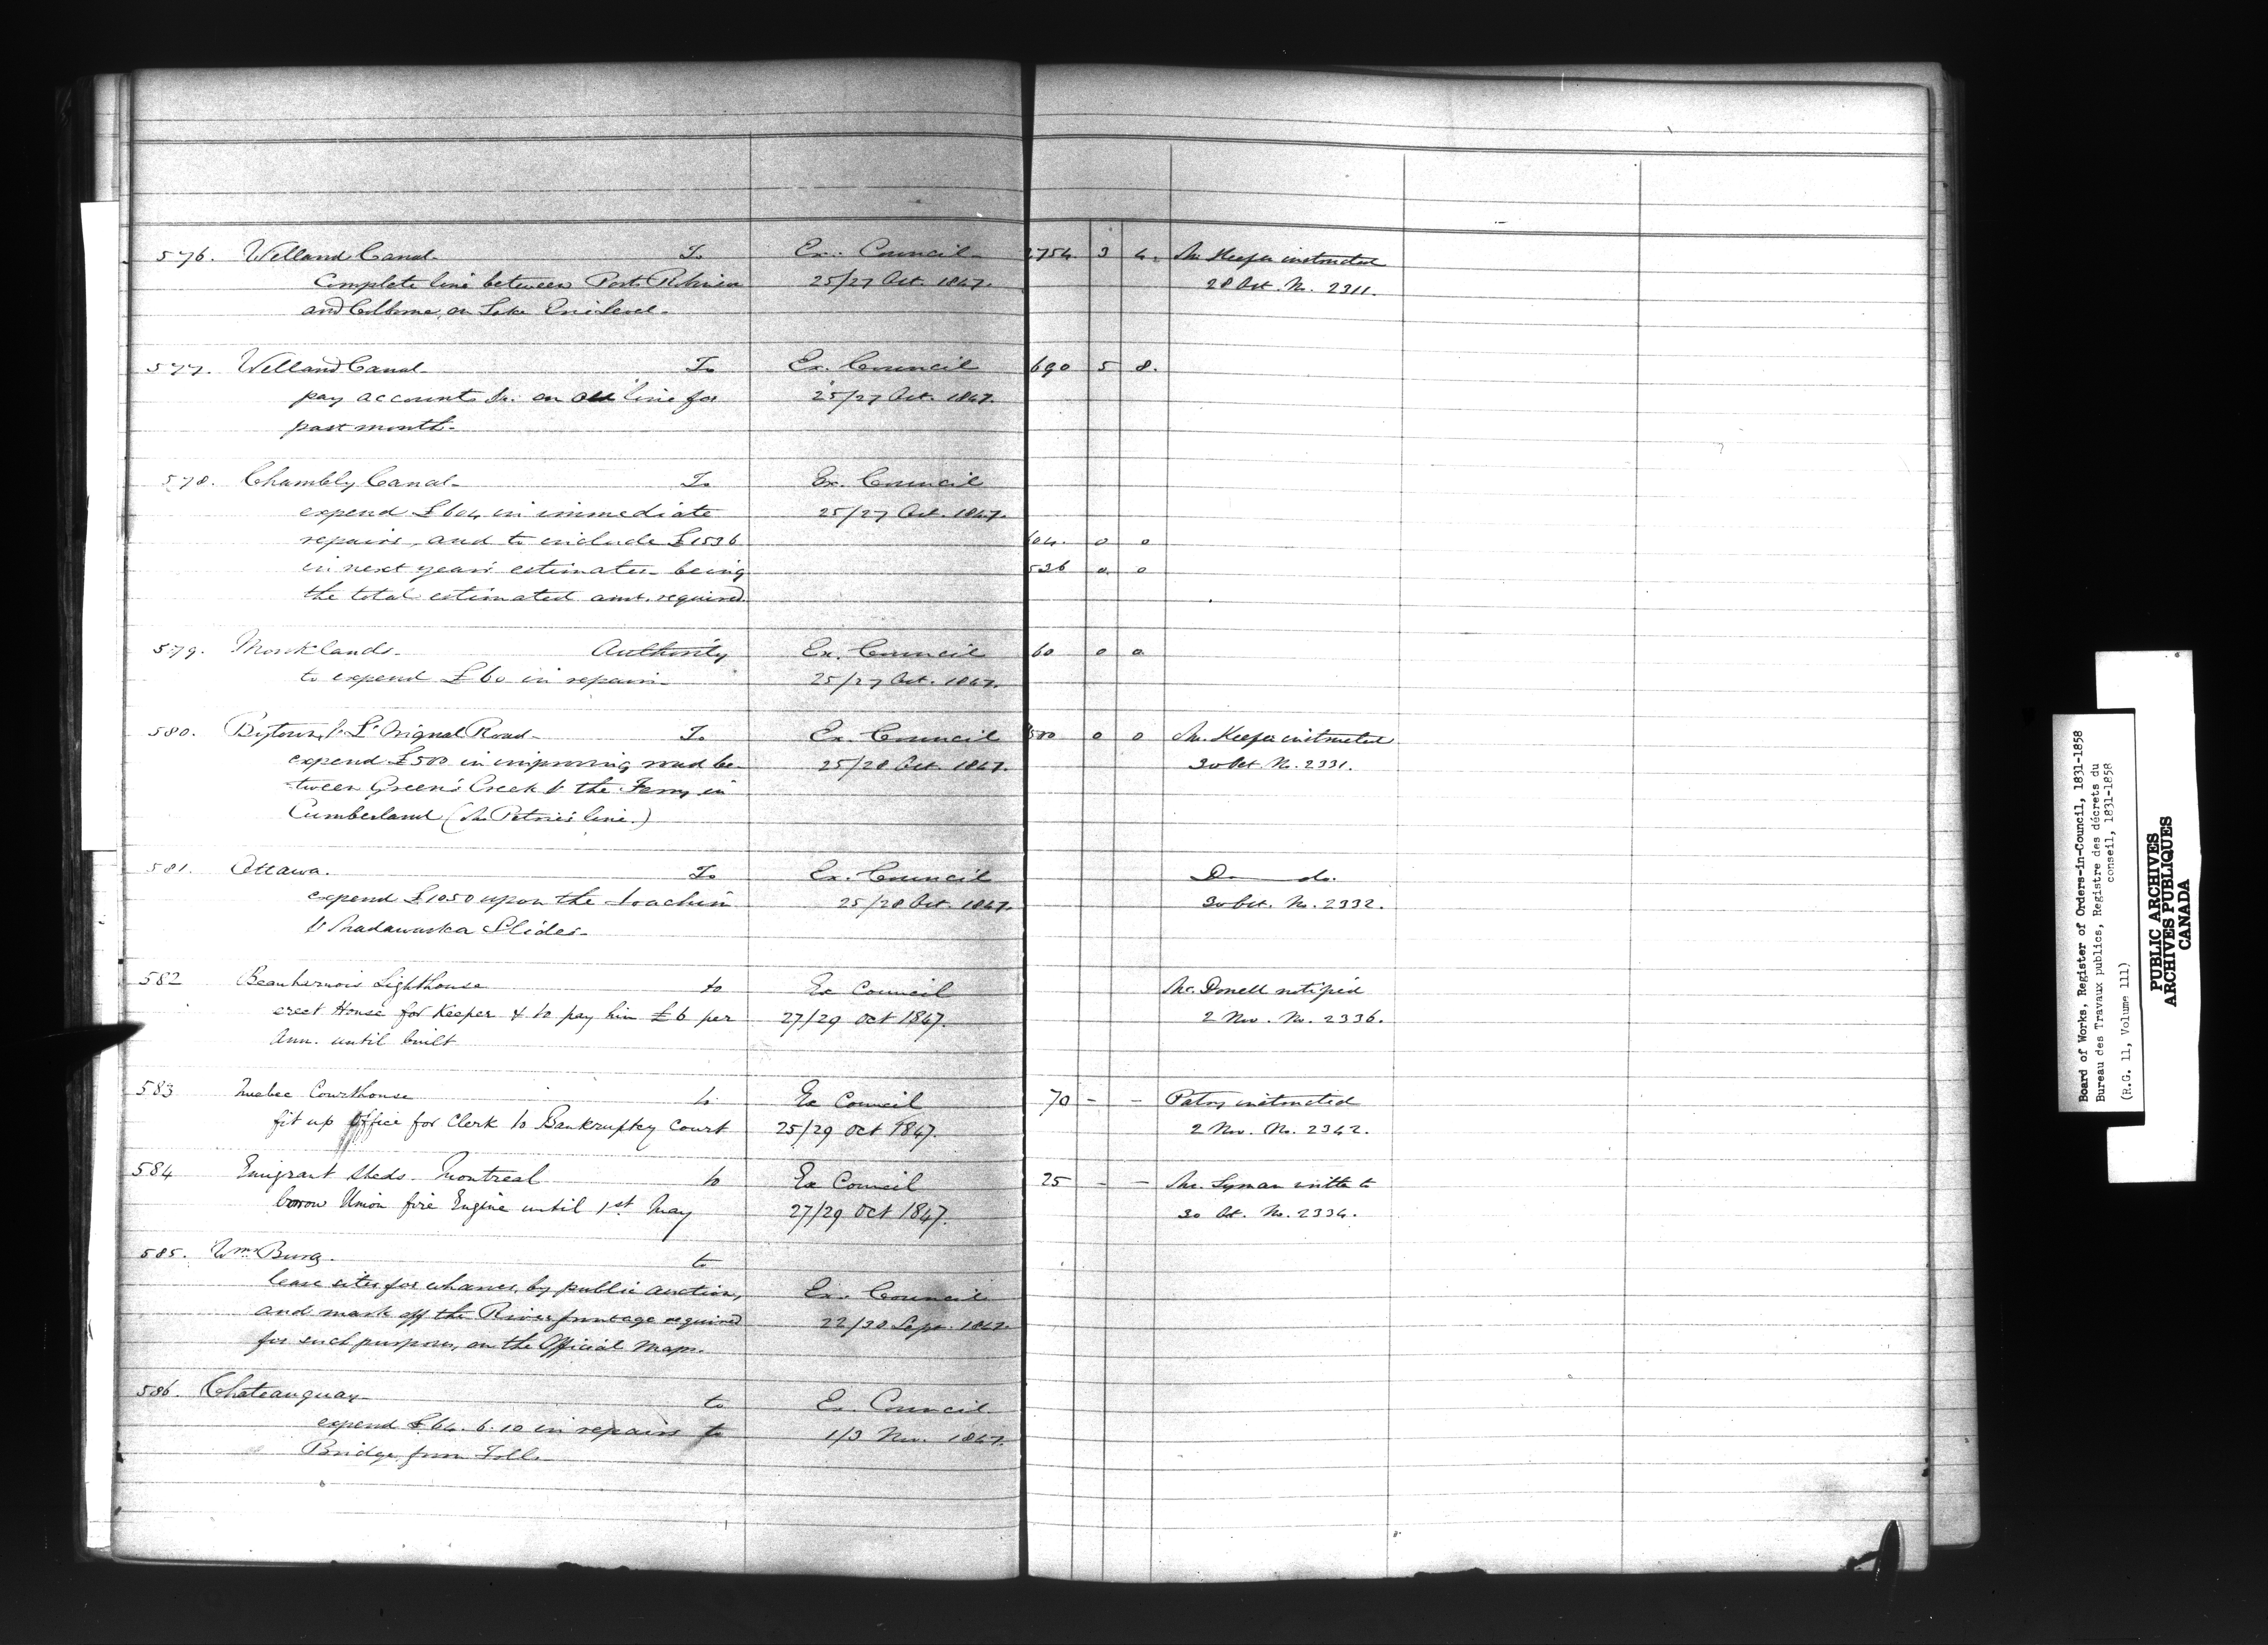 576. Welland Canal- To Ex. Council- 2754. 3 4. Mr. Keefer instructed
Complete line between Port Robinson 25/27 Oct. 1847. 28 Oct. No. 2311.
and Colborne, on Lake Erie Level-
577. Welland Canal- To Ex. Council 690 5 8.
pay accounts &c. on Old line for 25/27 Oct. 1847.
past month-
578. Chambly Canal- To Ex. Council
expend £604 in immediate 25/27 Oct. 1847.
repairs, and to include £1536 604. 0 0
in next year's estimates- being 536 0. 0
the total estimated amt. required
579. Monklands- Authority Ex. Council 60 0 0
to expend £60 in repairs- 25/27 Oct. 1847.
580. Bytown & L'Orignal Road- To Ex. Council 500 0 0 Mr. Keefer instructed
expend £500 in improving road be- 25/28 Oct. 1847. 30 Oct. No. 2331.
-tween Green's Creek & the Ferry in
Cumberland (Mr Petrie's line.)
581. Ottawa. To Ex. Council Do- do.
expend £1050 upon the Joachim 25/28 Oct. 1847. 30 Oct. No. 2332.
& Madawaska Slides-
582 Beauharnois Lighthouse to Ex Council Mc.Donell notified
erect House for Keeper & to pay him £6 per 27/29 Oct 1847. 2 Nov. No. 2336.
Ann. until built
583 Quebec Courthouse to Ex Council 70 - - Patry instructed
fit up Office for Clerk to Bankruptcy Court 25/29 Oct 1847. 2 Nov. No. 2342.
584 Emigrant Sheds- Montreal to Ex Council 25 - - Mr. Lyman written to
borrow Union fire Engine until 1st May 27/29 Oct 1847. 30 Oct. No. 2334.
585. Wm. Burg. to
lease sites for wharves, by public auction, Ex. Council
and mark off the River frontage required 22/30 Sept. 1847.
for such purposes, on the Official Maps.
586. Chateauguay- to Ex. Council
expend £64. 6. 10 in repairs to 1/3 Nov. 1847.
Bridge from Tolls.
Board of Works, Register of Orders-in-Council, 1831-1858
Bureau des Travaux publics, Registre des décrets du
conseil, 1831-1858
(R.G. 11, Volume 111)
PUBLIC ARCHIVES
ARCHIVES PUBLIQUES
CANADA